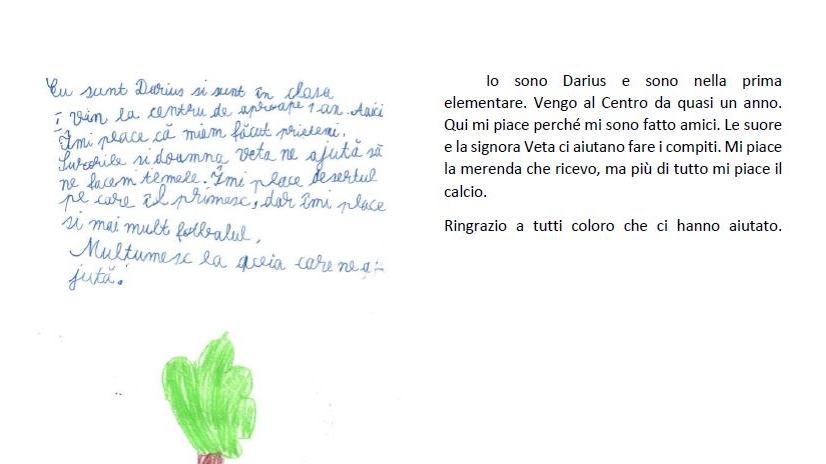 Eu sunt Darius si sunt în clasa
I vin la centru de aproape 1 an. Aici
Îmi place că miam făcut prieteni.
Surorile si doamna veta ne ajută să
ne facem temele. Îmi place desertul
pe care îl primesc, dar îmi place
si mai mult fotbalul.
Multumesc la aceia care ne a-
jută.
Io sono Darius e sono nella prima
elementare. Vengo al Centro da quasi un anno.
Qui mi piace perché mi sono fatto amici. Le suore
e la signora Veta ci aiutano fare i compiti. Mi piace
la merenda che ricevo, ma più di tutto mi piace il
calcio.
Ringrazio a tutti coloro che ci hanno aiutato.